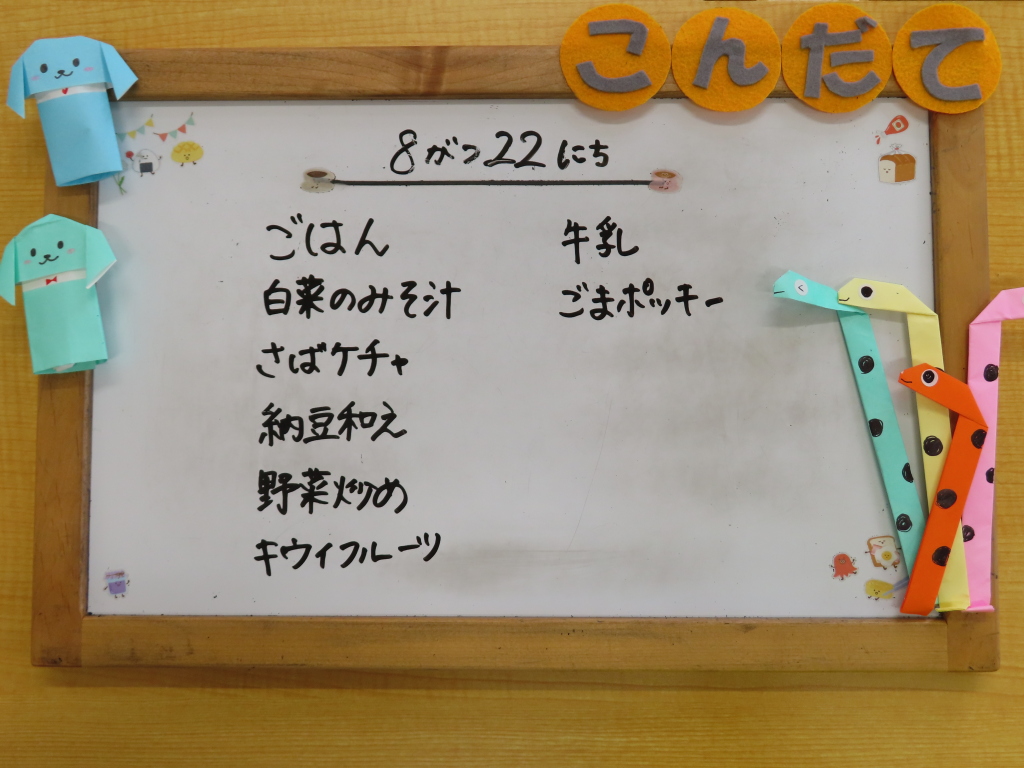 こんだて
8がつ22にち
ごはん
白菜のみそ汁
さばケチャ
納豆和え
野菜炒め
キウイフルーツ
牛乳
ごまポッキー